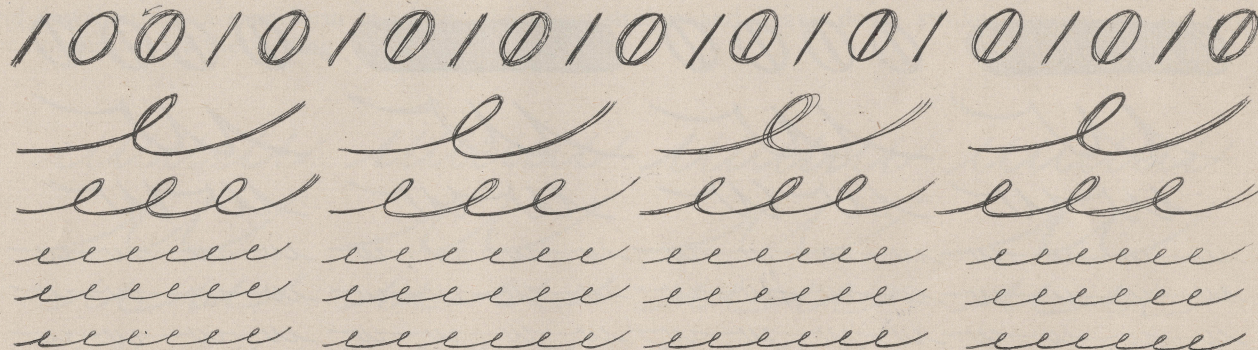 / O Ø / Ø / Ø / Ø / Ø / Ø / Ø / Ø / Ø / Ø
e e e e
eee eee eee eee
eeeeee eeeeee eeeeee eeeee
eeeeee eeeeee eeeeee eeeee
eeeeee eeeeee eeeeee eeeee